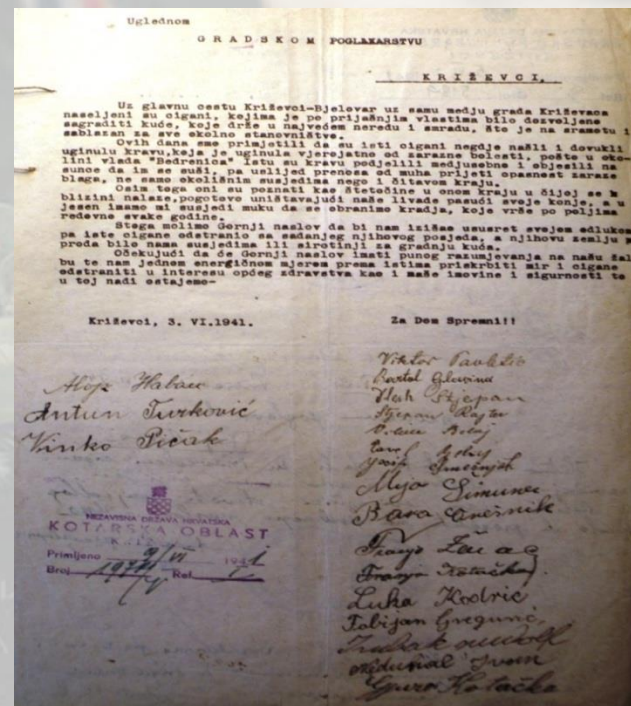 Uglednom
GRADSKOM POGLAVARSTVU
KRIŽEVCI,
Uz glavnu cestu Križevci-Bjelovar uz samu medju grada Križevaca
naseljeni su cigani, kojima je po prijašnjim vlastima bilo dozvoljeno
sagraditi kuće, koje drže u najvećem neredu i smradu, što je na sramotu i
sablazan za sve okolno stanovništvo.
Ovih dana smo primjetili da su isti cigani negdje našli i dovukli
uginulu kravu,koja je uginula vjerojatno od zarazne bolesti, pošto u oko-
lini vlada "Bedrenica" istu su kravu podjelili medjusobno i objesili na
sunce da im se suši, pa uslijed prenosa od muha prijeti opasnost zaraze
blaga, ne samo okolišnim susjedima nego i čitavom kraju.
Osim toga oni su poznati kao štetočine u onom kraju u čijoj se
blizini nalaze,pogotovo uništavajući naše livade pasući svoje konje, a u
jesen imamo mi susjedi muku da se obranimo kradja, koje vrše po poljima
redovno svake godine.
Stoga molimo Gornji naslov da bi nam izišao ususret svojom odlukom
pa iste cigane odstranio sa sadanjeg njihovog posjeda, a njihovu zemlju
proda bilo nama susjedima ili sirotinji za gradnju kuća.
Očekujući da će Gornji naslov imati punog razumjevanja na našu
bu te nam jednom energičnom mjerom prema istima priskrbiti mir i cigane
odstraniti u interesu općeg zdravstva kao i naše imovine i sigurnosti te
u toj nadi ostajemo-
Križevci, 3. VI.1941.
Za Dom Spremni!!
Alojz
Antun Turković
Vinko Pičak
Viktor
Bartol Glavina
Stjepan
Stjepan
Josip
Mijo Šimunec
Bara
Franjo
Franjo Kotačka
Luka Kodrić
Fabijan Gregurić,
Ivan
Gjuro Kotačka
NEZAVISNA DRŽAVA HRVATSKA
KOTARSKA OBLAST
Primljeno 9/VI 1941
Broj Ref.